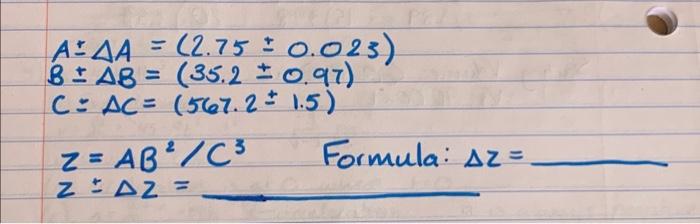 A ± ΔA = (2.75 ± 0.023)
B ± ΔB = (35.2 ± 0.97)
C ± ΔC = (567.2 ± 1.5)
Z = AB²/C³ Formula: ΔZ = ______
Z ± ΔZ = ______